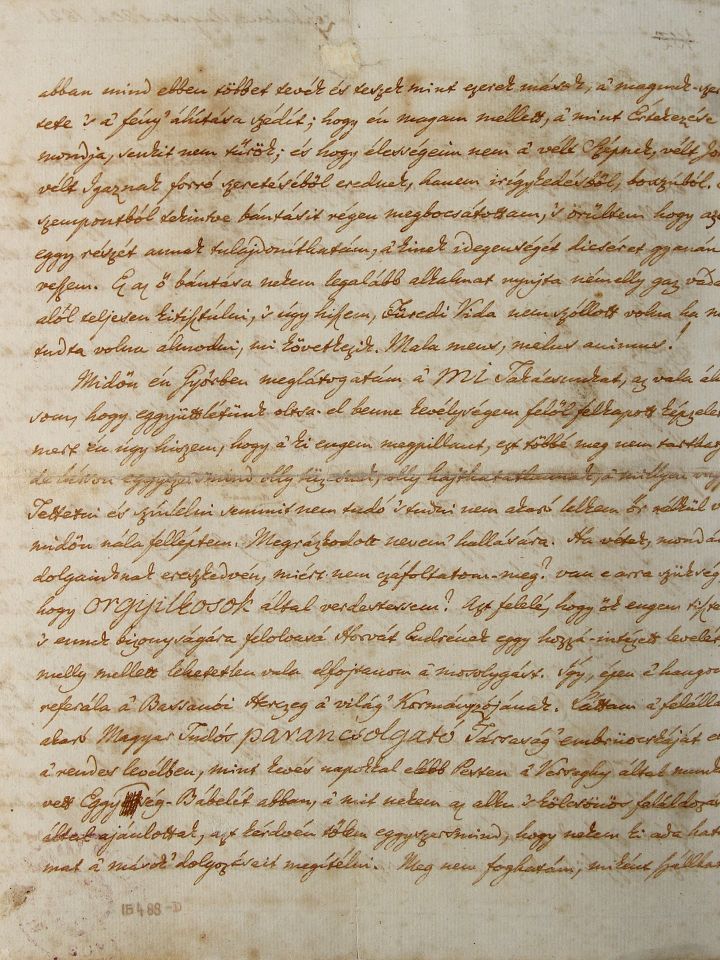 abban mind ebben többet tevék és teszek mint ezerek mások, 's magunk-sze
tete 's a' fény' álítása szédít; hogy én magam mellett, a' mint Értekezése
mondja, senkit nem tűrök; és hogy élességeim nem a' vélt Szépnek, vélt Jó
vélt Igaznak forró szeretéséből erednek, hanem irígykedésből, boszúból.
szempontból tekintve bántásit régen megbocsátottam, 's örűltem hogy az
eggy részét annak tulajdoníthatám, a' kinek idegenségét dicséret gyanán
veszem. Ez az ő bántása nekem legalább alkalmat nyujta némelly gaz vád
alól teljesen kitisztúlni, 's úgy hiszem, Füredi Vida nem szóllott volna ha
tudta volna álmodni, mi következik. Mala mens, malus animus!
Midőn én Győrben meglátogatám a' MI Takácsunkat, az vala
som, hogy eggyüttlétünk oltsa-el benne kevélységem felől felkapott képzele
mert én úgy hiszem, hogy a' ki engem megpillant, ezt többé meg nem tartha
olly hajthatatlannak, a' millyen
Tettetni és színlelni semmit nem tudó 's tudni nem akaró lelkem őr nélkül v
midőn nála felléptem. Megrázkodott nevem' hallására. Ha vétek, mondá
dolgainknak ereszkedvén, miért nem czáfoltatom-meg? van e arra szükség
hogy orgyilkosok által verdestessem? Azt felelé, hogy ők engem tiszte
's ennek bizonyságára felolvasá Horvát Endrének eggy hozzá-intézett levelét,
melly mellett lehetetlen vala elfojtanom a' mosolygást. Így, épen a' hangon
referála a' Bassanói Herczeg a' világ' Kormányzójának. Láttam a' feláll
akaró Magyar Tudós parancsolgató Társaság' embrüócskáját
a' rendes levélben, mint kevés napokkal elébb Pesten a' Verseghy által
vett Eggy ség-Bábelét abban, a' mit nekem az ellen 's kölcsönös feláldozás
által ajánlottak, azt kérdvén tőlem eggyszersmind, hogy nekem ki ada hata
mat a' mások' dolgozásait megítélni. Meg nem foghatám, miként szállha
15488-D